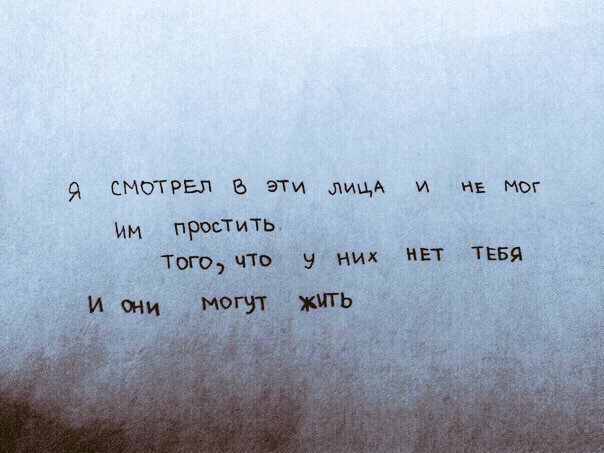 Я СМОТРЕЛ В ЭТИ ЛИЦА И НЕ МОГ
ИМ ПРОСТИТЬ
ТОГО, ЧТО У НИХ НЕТ ТЕБЯ
И ОНИ МОГУТ ЖИТЬ